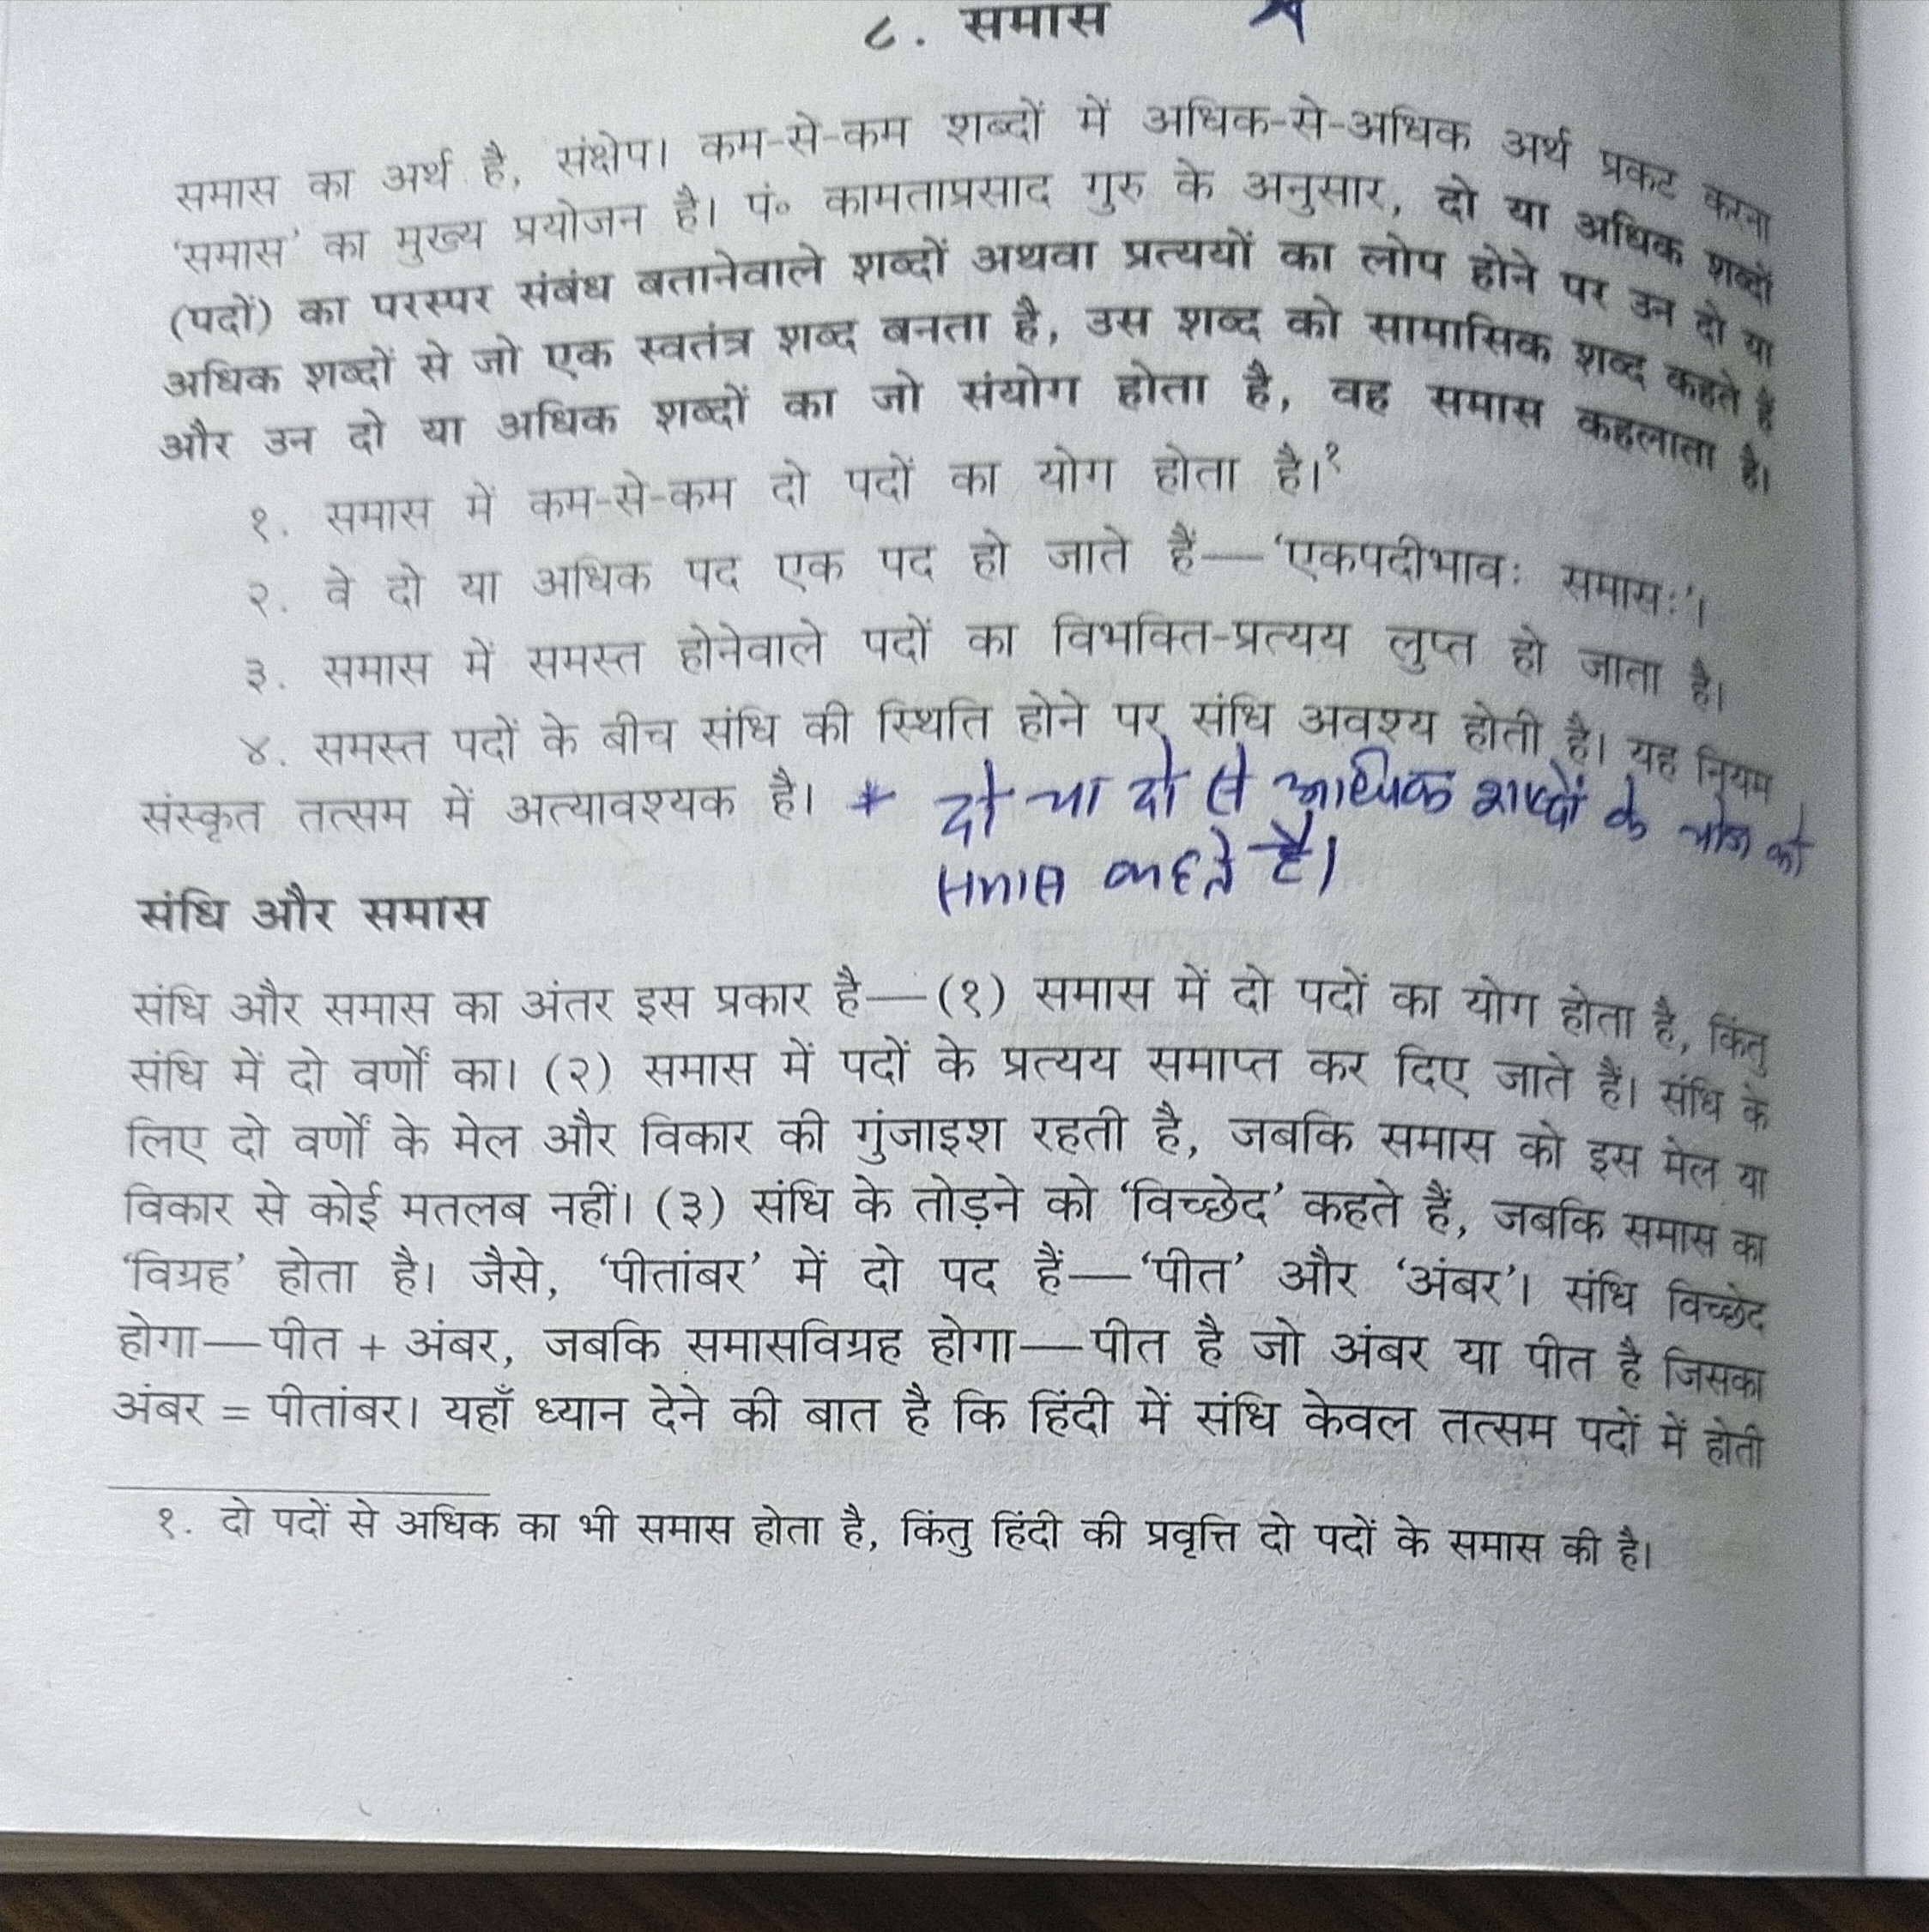 ८. समास
समास का अर्थ है, संक्षेप। कम-से-कम शब्दों में अधिक-से-अधिक अर्थ प्रकट करना
‘समास’ का मुख्य प्रयोजन है। पं॰ कामताप्रसाद गुरु के अनुसार, दो या अधिक शब्दों
(पदों) का परस्पर संबंध बतानेवाले शब्दों अथवा प्रत्ययों का लोप होने पर उन दो या
अधिक शब्दों से जो एक स्वतंत्र शब्द बनता है, उस शब्द को सामासिक शब्द कहते हैं
और उन दो या अधिक शब्दों का जो संयोग होता है, वह समास कहलाता है।
१. समास में कम-से-कम दो पदों का योग होता है।१
२. वे दो या अधिक पद एक पद हो जाते हैं—‘एकपदीभावः समासः’।
३. समास में समस्त होनेवाले पदों का विभक्ति-प्रत्यय लुप्त हो जाता है।
४. समस्त पदों के बीच संधि की स्थिति होने पर संधि अवश्य होती है। यह नियम
संस्कृत तत्सम में अत्यावश्यक है।
* दो या दो से अधिक शब्दों के को
समास कहते है।
संधि और समास
संधि और समास का अंतर इस प्रकार है—(१) समास में दो पदों का योग होता है, किंतु
संधि में दो वर्णों का। (२) समास में पदों के प्रत्यय समाप्त कर दिए जाते हैं। संधि के
लिए दो वर्णों के मेल और विकार की गुंजाइश रहती है, जबकि समास को इस मेल या
विकार से कोई मतलब नहीं। (३) संधि के तोड़ने को ‘विच्छेद’ कहते हैं, जबकि समास का
‘विग्रह’ होता है। जैसे, ‘पीतांबर’ में दो पद हैं—‘पीत’ और ‘अंबर’। संधि विच्छेद
होगा—पीत + अंबर, जबकि समासविग्रह होगा—पीत है जो अंबर या पीत है जिसका
अंबर = पीतांबर। यहाँ ध्यान देने की बात है कि हिंदी में संधि केवल तत्सम पदों में होती
१. दो पदों से अधिक का भी समास होता है, किंतु हिंदी की प्रवृत्ति दो पदों के समास की है।